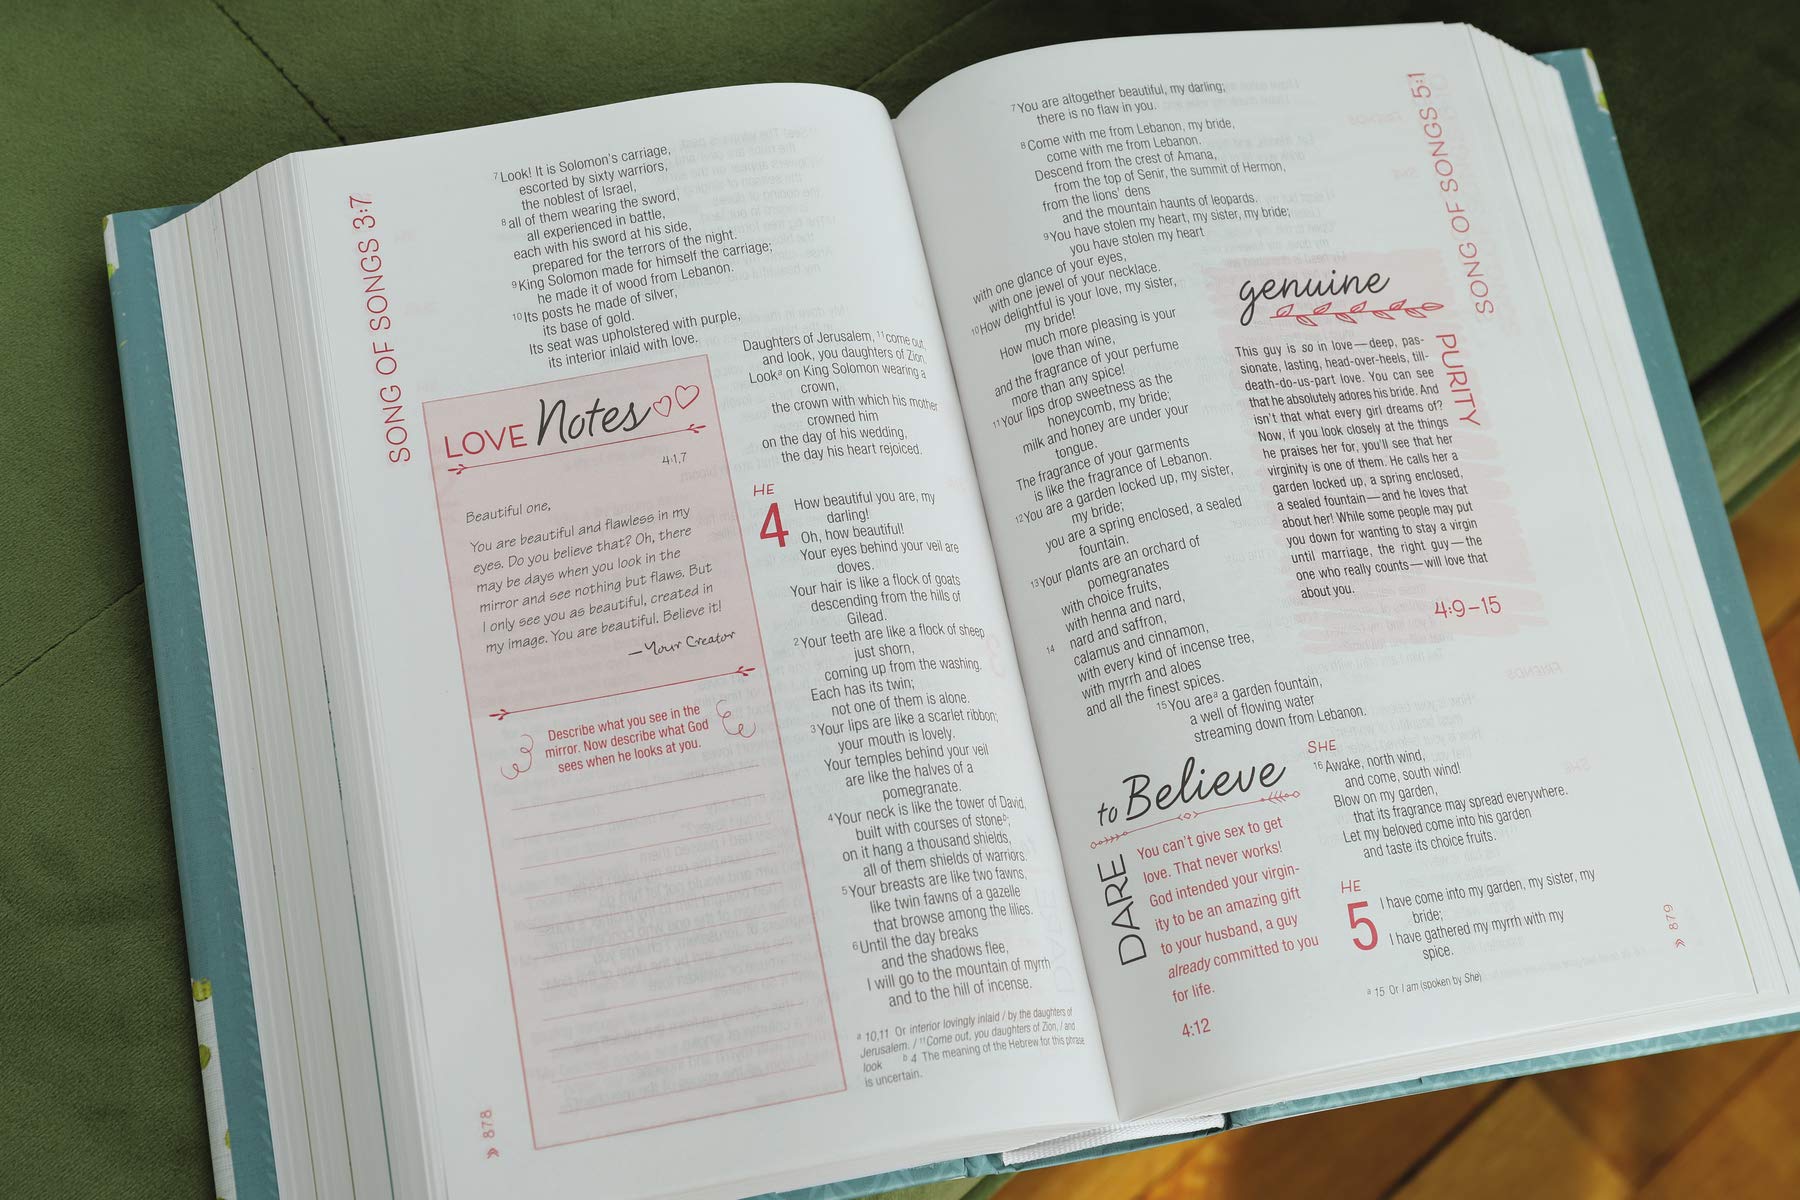 SONG OF SONGS 3:7
7Look! It is Solomon's carriage,
escorted by sixty warriors,
the noblest of Israel,
8all of them wearing the sword,
all experienced in battle,
each with his sword at his side,
prepared for the terrors of the night.
9King Solomon made for himself the carriage;
he made it of wood from Lebanon.
10Its posts he made of silver,
its base of gold.
Its seat was upholstered with purple,
its interior inlaid with love.
Daughters of Jerusalem, 11come out,
and look, you daughters of Zion.
Looka on King Solomon wearing a
crown,
the crown with which his mother
crowned him
on the day of his wedding,
the day his heart rejoiced.
LOVE Notes
4:1,7
Beautiful one,
You are beautiful and flawless in my
eyes. Do you believe that? Oh, there
may be days when you look in the
mirror and see nothing but flaws. But
I only see you as beautiful, created in
my image. You are beautiful. Believe it!
—Your Creator
Describe what you see in the
mirror. Now describe what God
sees when he looks at you.
HE
4
How beautiful you are, my
darling!
Oh, how beautiful!
Your eyes behind your veil are
doves.
Your hair is like a flock of goats
descending from the hills of
Gilead.
2Your teeth are like a flock of sheep
just shorn,
coming up from the washing.
Each has its twin;
not one of them is alone.
3Your lips are like a scarlet ribbon;
your mouth is lovely.
Your temples behind your veil
are like the halves of a
pomegranate.
4Your neck is like the tower of David,
built with courses of stoneb;
on it hang a thousand shields,
all of them shields of warriors.
5Your breasts are like two fawns,
like twin fawns of a gazelle
that browse among the lilies.
6Until the day breaks
and the shadows flee,
I will go to the mountain of myrrh
and to the hill of incense.
a 10,11 Or interior lovingly inlaid / by the daughters of
Jerusalem. / 11Come out, you daughters of Zion, / and
look b 4 The meaning of the Hebrew for this phrase
is uncertain.
» 878
7You are altogether beautiful, my darling;
there is no flaw in you.
8Come with me from Lebanon, my bride,
come with me from Lebanon.
Descend from the crest of Amana,
from the top of Senir, the summit of Hermon,
from the lions' dens
and the mountain haunts of leopards.
9You have stolen my heart, my sister, my bride;
you have stolen my heart
with one glance of your eyes,
with one jewel of your necklace.
10How delightful is your love, my sister,
my bride!
How much more pleasing is your
love than wine,
and the fragrance of your perfume
more than any spice!
11Your lips drop sweetness as the
honeycomb, my bride;
milk and honey are under your
tongue.
The fragrance of your garments
is like the fragrance of Lebanon.
12You are a garden locked up, my sister,
my bride;
you are a spring enclosed, a sealed
fountain.
13Your plants are an orchard of
pomegranates
with choice fruits,
with henna and nard,
14 nard and saffron,
calamus and cinnamon,
with every kind of incense tree,
with myrrh and aloes
and all the finest spices.
15You area a garden fountain,
a well of flowing water
streaming down from Lebanon.
SONG OF SONGS 5:1
genuine
PURITY
This guy is so in love—deep, pas-
sionate, lasting, head-over-heels, till-
death-do-us-part love. You can see
that he absolutely adores his bride. And
isn't that what every girl dreams of?
Now, if you look closely at the things
he praises her for, you'll see that her
virginity is one of them. He calls her a
garden locked up, a spring enclosed,
a sealed fountain—and he loves that
about her! While some people may put
you down for wanting to stay a virgin
until marriage, the right guy—the
one who really counts—will love that
about you.
4:9–15
DARE
to Believe
You can't give sex to get
love. That never works!
God intended your virgin-
ity to be an amazing gift
to your husband, a guy
already committed to you
for life.
4:12
SHE
16Awake, north wind,
and come, south wind!
Blow on my garden,
that its fragrance may spread everywhere.
Let my beloved come into his garden
and taste its choice fruits.
HE
5
I have come into my garden, my sister, my
bride;
I have gathered my myrrh with my
spice.
a 15 Or I am (spoken by She)
» 879